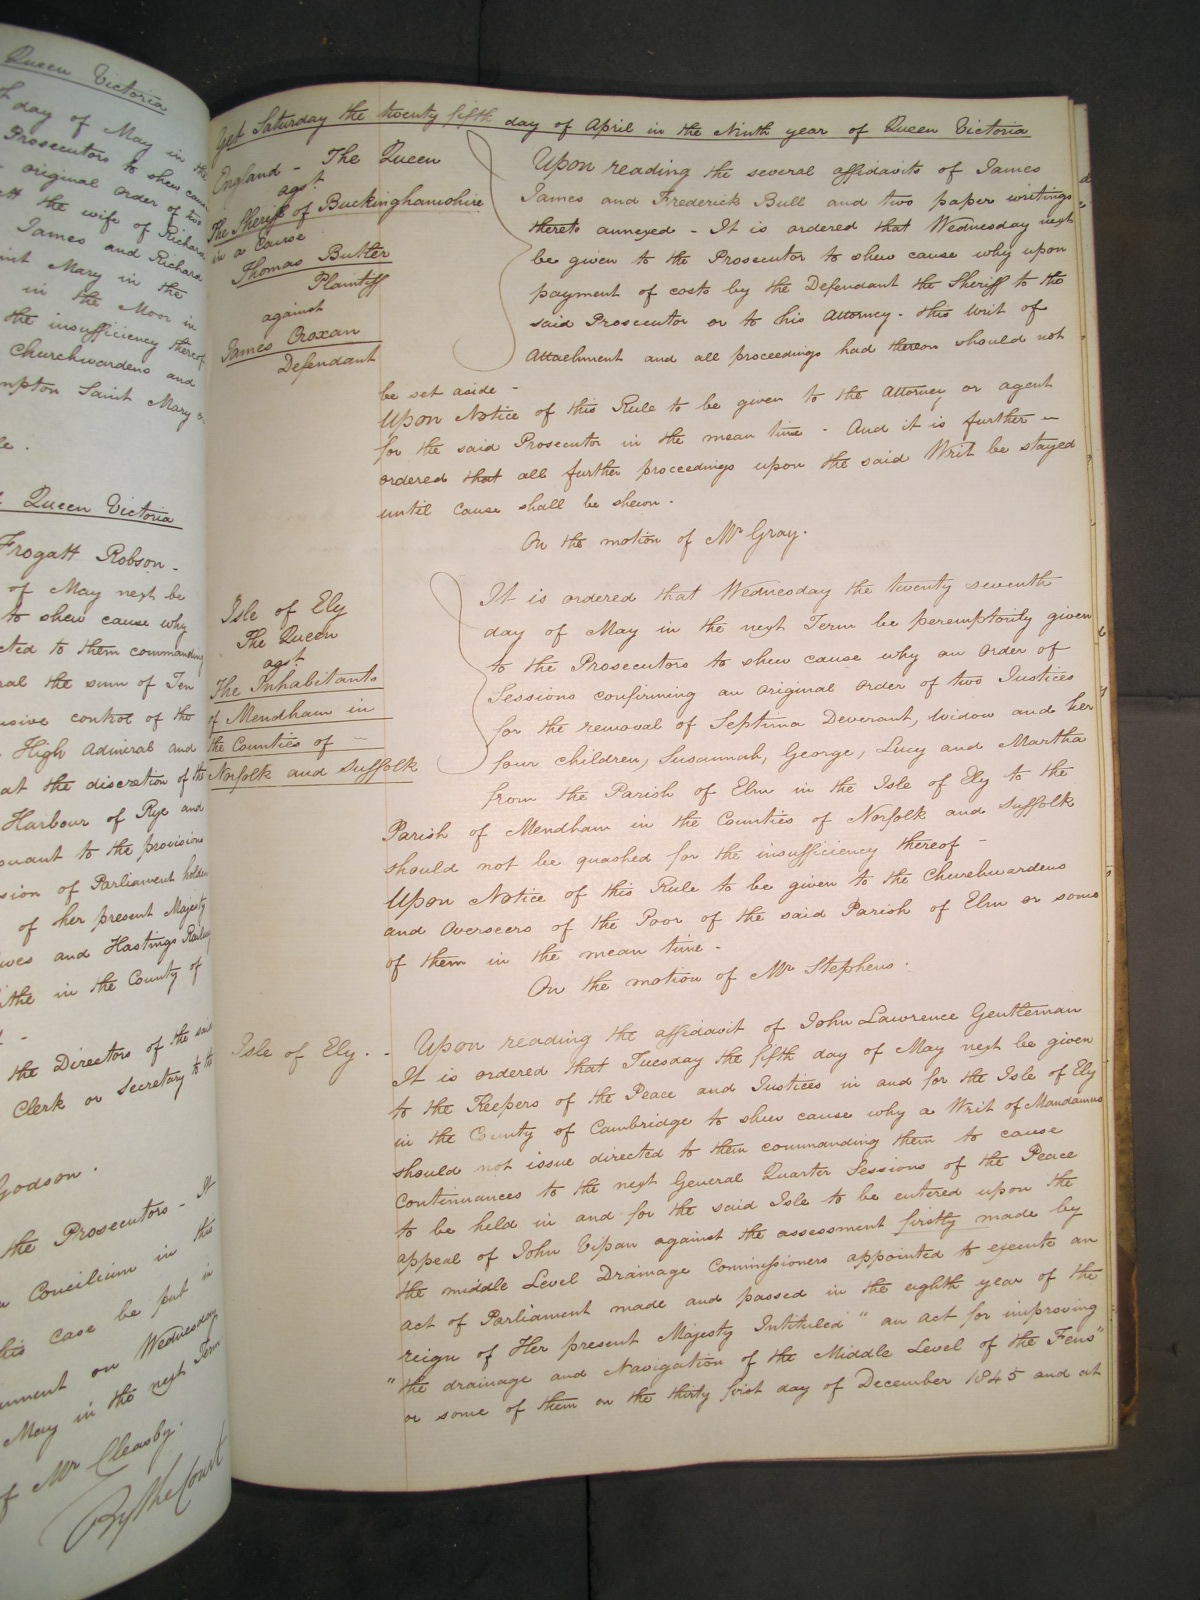 Queen Victoria
day of May in the
Prosecutors to shew cause
original order of two
the wife of Richard
James and Richard
Mary in the
in the Moor in
the insufficiency thereof
Churchwardens and
Saint Mary
Queen Victoria
Frogatt Robson -
of May next be
to shew cause why
to them commanding
the sum of Ten
control of the
High Admiral and
at the discretion of the
Harbour of Rye and
to the provisions
of Parliament holden
of her present Majesty
and Hastings Railway
in the County of
the Directors of the said
Clerk or Secretary to the
Godson.
the Prosecutors - It
Concilium in this
case be put in
on Wednesday
May in the next Term
of Mr Cleasby
By the Court
Yet Saturday the twenty fifth day of April in the Ninth year of Queen Victoria
England - The Queen
agst
The Sheriff of Buckinghamshire
in a Cause
Thomas Butler
Plaintiff
against
James Croxan
Defendant
Upon reading the several affidavits of James
James and Frederick Bull and two paper writings
thereto annexed - It is ordered that Wednesday next
be given to the Prosecutor to shew cause why upon
payment of costs by the Defendant the Sheriff to the
said Prosecutor or to his Attorney - this Writ of
Attachment and all proceedings had thereon should not
be set aside -
Upon Notice of this Rule to be given to the Attorney or agent
for the said Prosecutor in the mean time - And it is further
ordered that all further proceedings upon the said Writ be stayed
until cause shall be shewn.
On the motion of Mr Gray.
Isle of Ely
The Queen
agst
The Inhabitants
of Mendham in
the Counties of
Norfolk and Suffolk
It is ordered that Wednesday the twenty seventh
day of May in the next Term be peremptorily given
to the Prosecutors to shew cause why an order of
Sessions confirming an original order of two Justices
for the removal of Septima Deverant, widow and her
four children, Susannah, George, Lucy and Martha
from the Parish of Elm in the Isle of Ely to the
Parish of Mendham in the Counties of Norfolk and Suffolk
should not be quashed for the insufficiency thereof -
Upon Notice of this Rule to be given to the Churchwardens
and Overseers of the Poor of the said Parish of Elm or some
of them in the mean time -
On the motion of Mr Stephens.
Isle of Ely. -
Upon reading the affidavit of John Lawrence Gentleman
It is ordered that Tuesday the fifth day of May next be given
to the Keepers of the Peace and Justices in and for the Isle of Ely
in the County of Cambridge to shew cause why a Writ of Mandamus
should not issue directed to them commanding them to cause
Continuances to the next General Quarter Sessions of the Peace
to be held in and for the said Isle to be entered upon the
appeal of John Vipan against the assessment firstly made by
the middle Level Drainage Commissioners appointed to execute an
act of Parliament made and passed in the eighth year of the
reign of Her present Majesty Intituled " an act for improving
" the drainage and Navigation of the Middle Level of the Fens"
or some of them on the thirty first day of December 1845 and at